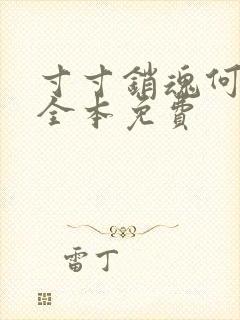 寸寸銷魂何
全本免費
雷丁